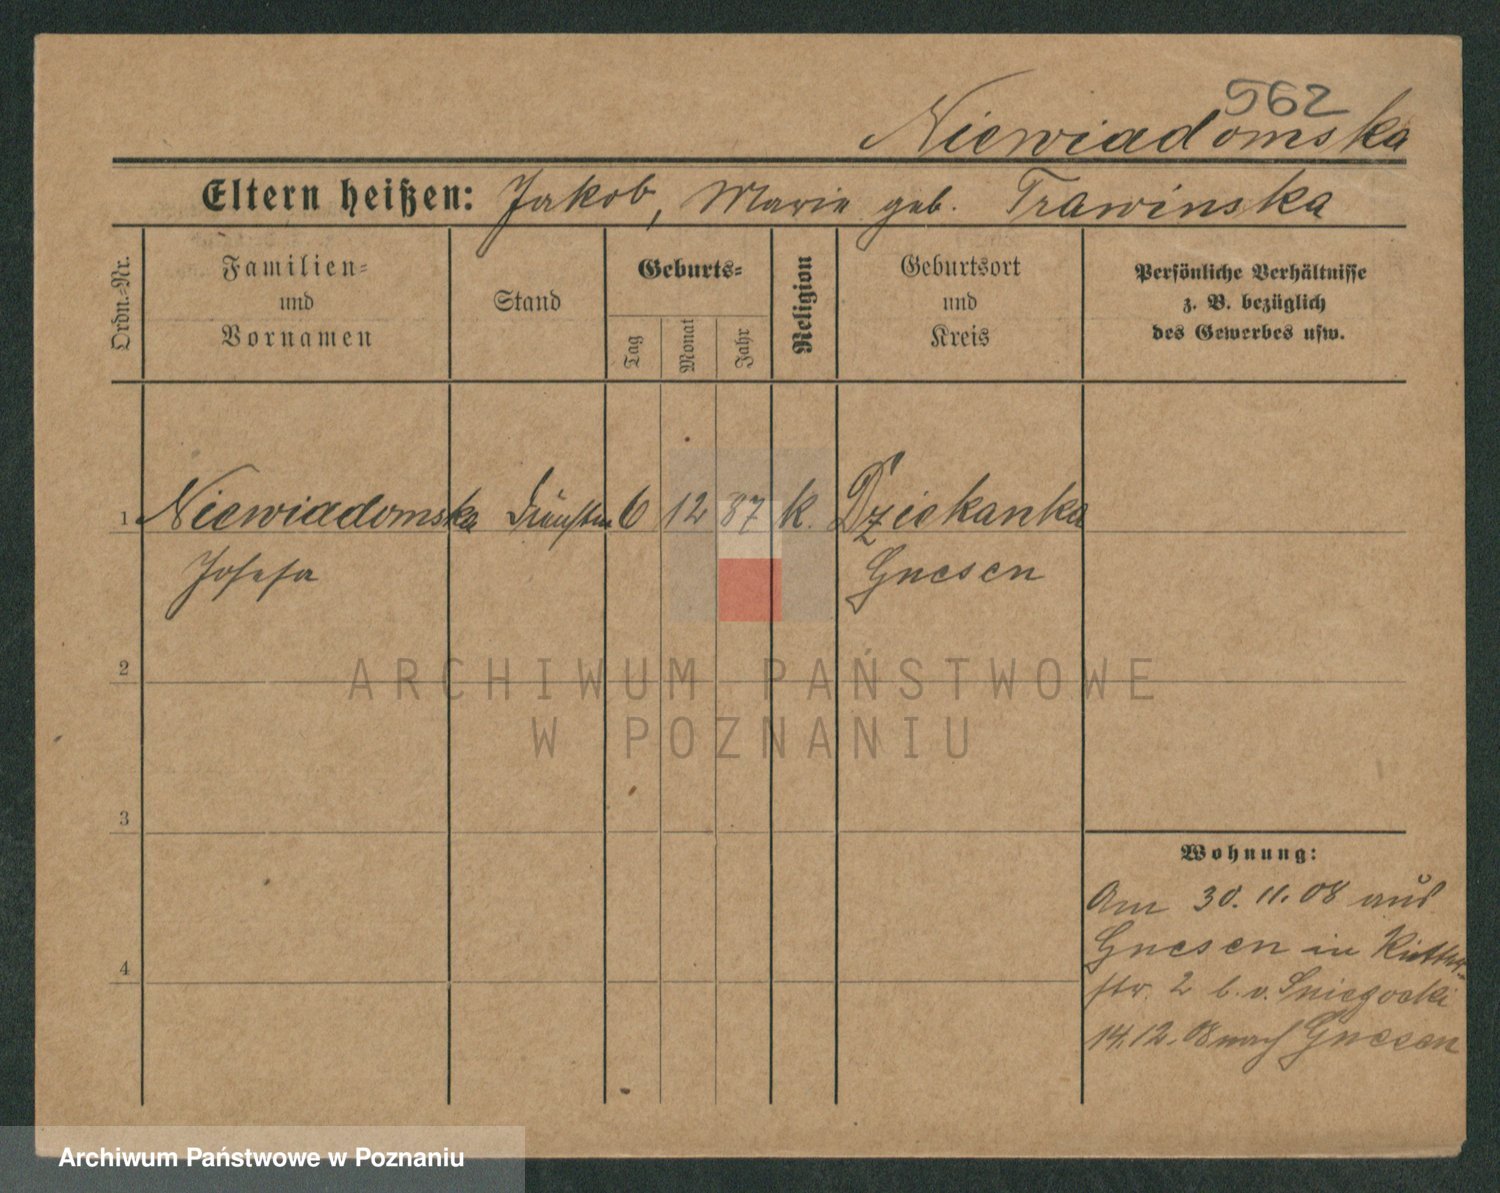 562
Niewiadomska
Eltern heißen: Jakob, Marie geb. Trawinska
Ordn.-Nr.
Familien-
und
Vornamen
Stand
Geburts-
Tag
Monat
Jahr
Religion
Geburtsort
und
Kreis
Persönliche Verhältnisse
z. B. bezüglich
des Gewerbes usw.
1 Niewiadomska 6 12 87 k. Dziekanka
Josefa Gnesen
2
ARCHIWUM PAŃSTWOWE
W POZNANIU
3
Wohnung:
Am 30. 11. 08 aus
Gnesen in Ritter-
str. 2 b. v. Sniegocki
4
14.12.08 nach Gnesen
Archiwum Państwowe w Poznaniu